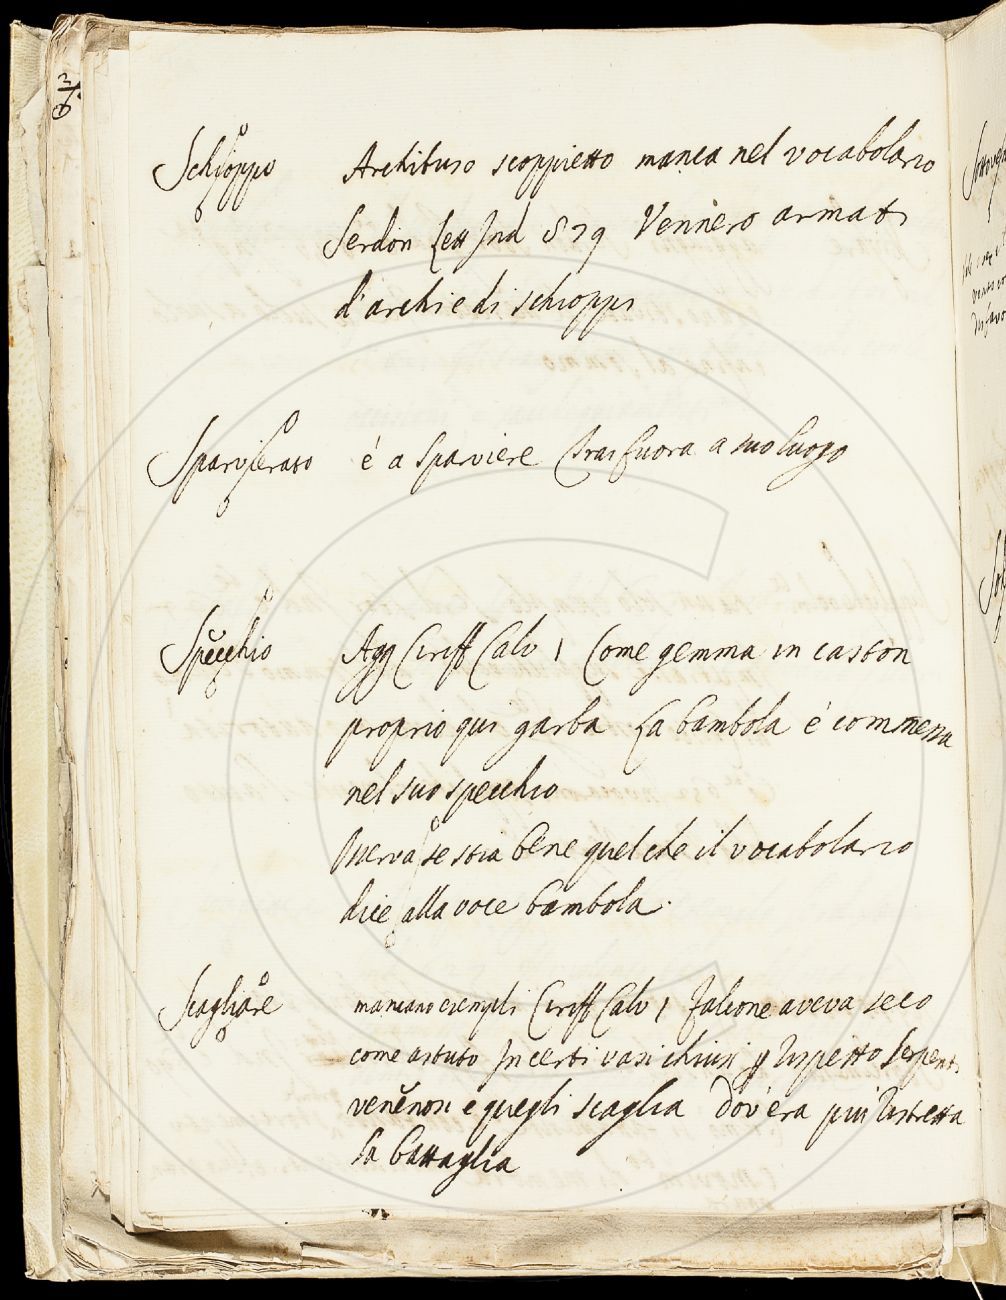 Schioppo Archibuso scoppietto manca nel vocabolario
Serdon Lett Ind 879 Vennero armati
d'archi e di schioppi
Sparvierato è a Sparviere Trai fuora a suo luogo
Specchio Agg Ciriff Calv 1 Come gemma in caston
proprio qui garba La bambola è commessa
nel suo specchio
Osserva se stia bene quel che il vocabolario
dice alla voce bambola.
Scagliare mancano esempli Ciriff Calv 1 Falcone aveva seco
come astuto In certi vasi chiusi p dispetto Serpenti
venenosi e quegli scaglia Dov'era più ristretta
la battaglia